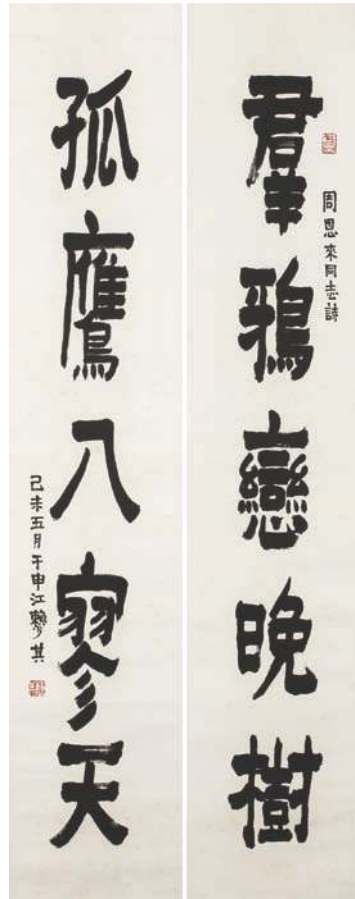 羣鴉戀晚樹
周恩來同志詩
孤鷹入寥天
己未五月于申江賴少其